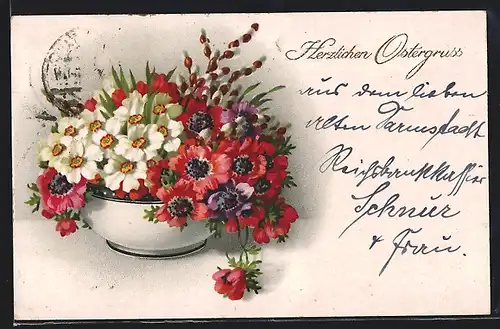 Herzlichen Ostergruss
aus dem lieben
alten Darmstadt
Reichsbankkassier
Schnur
+ Frau.